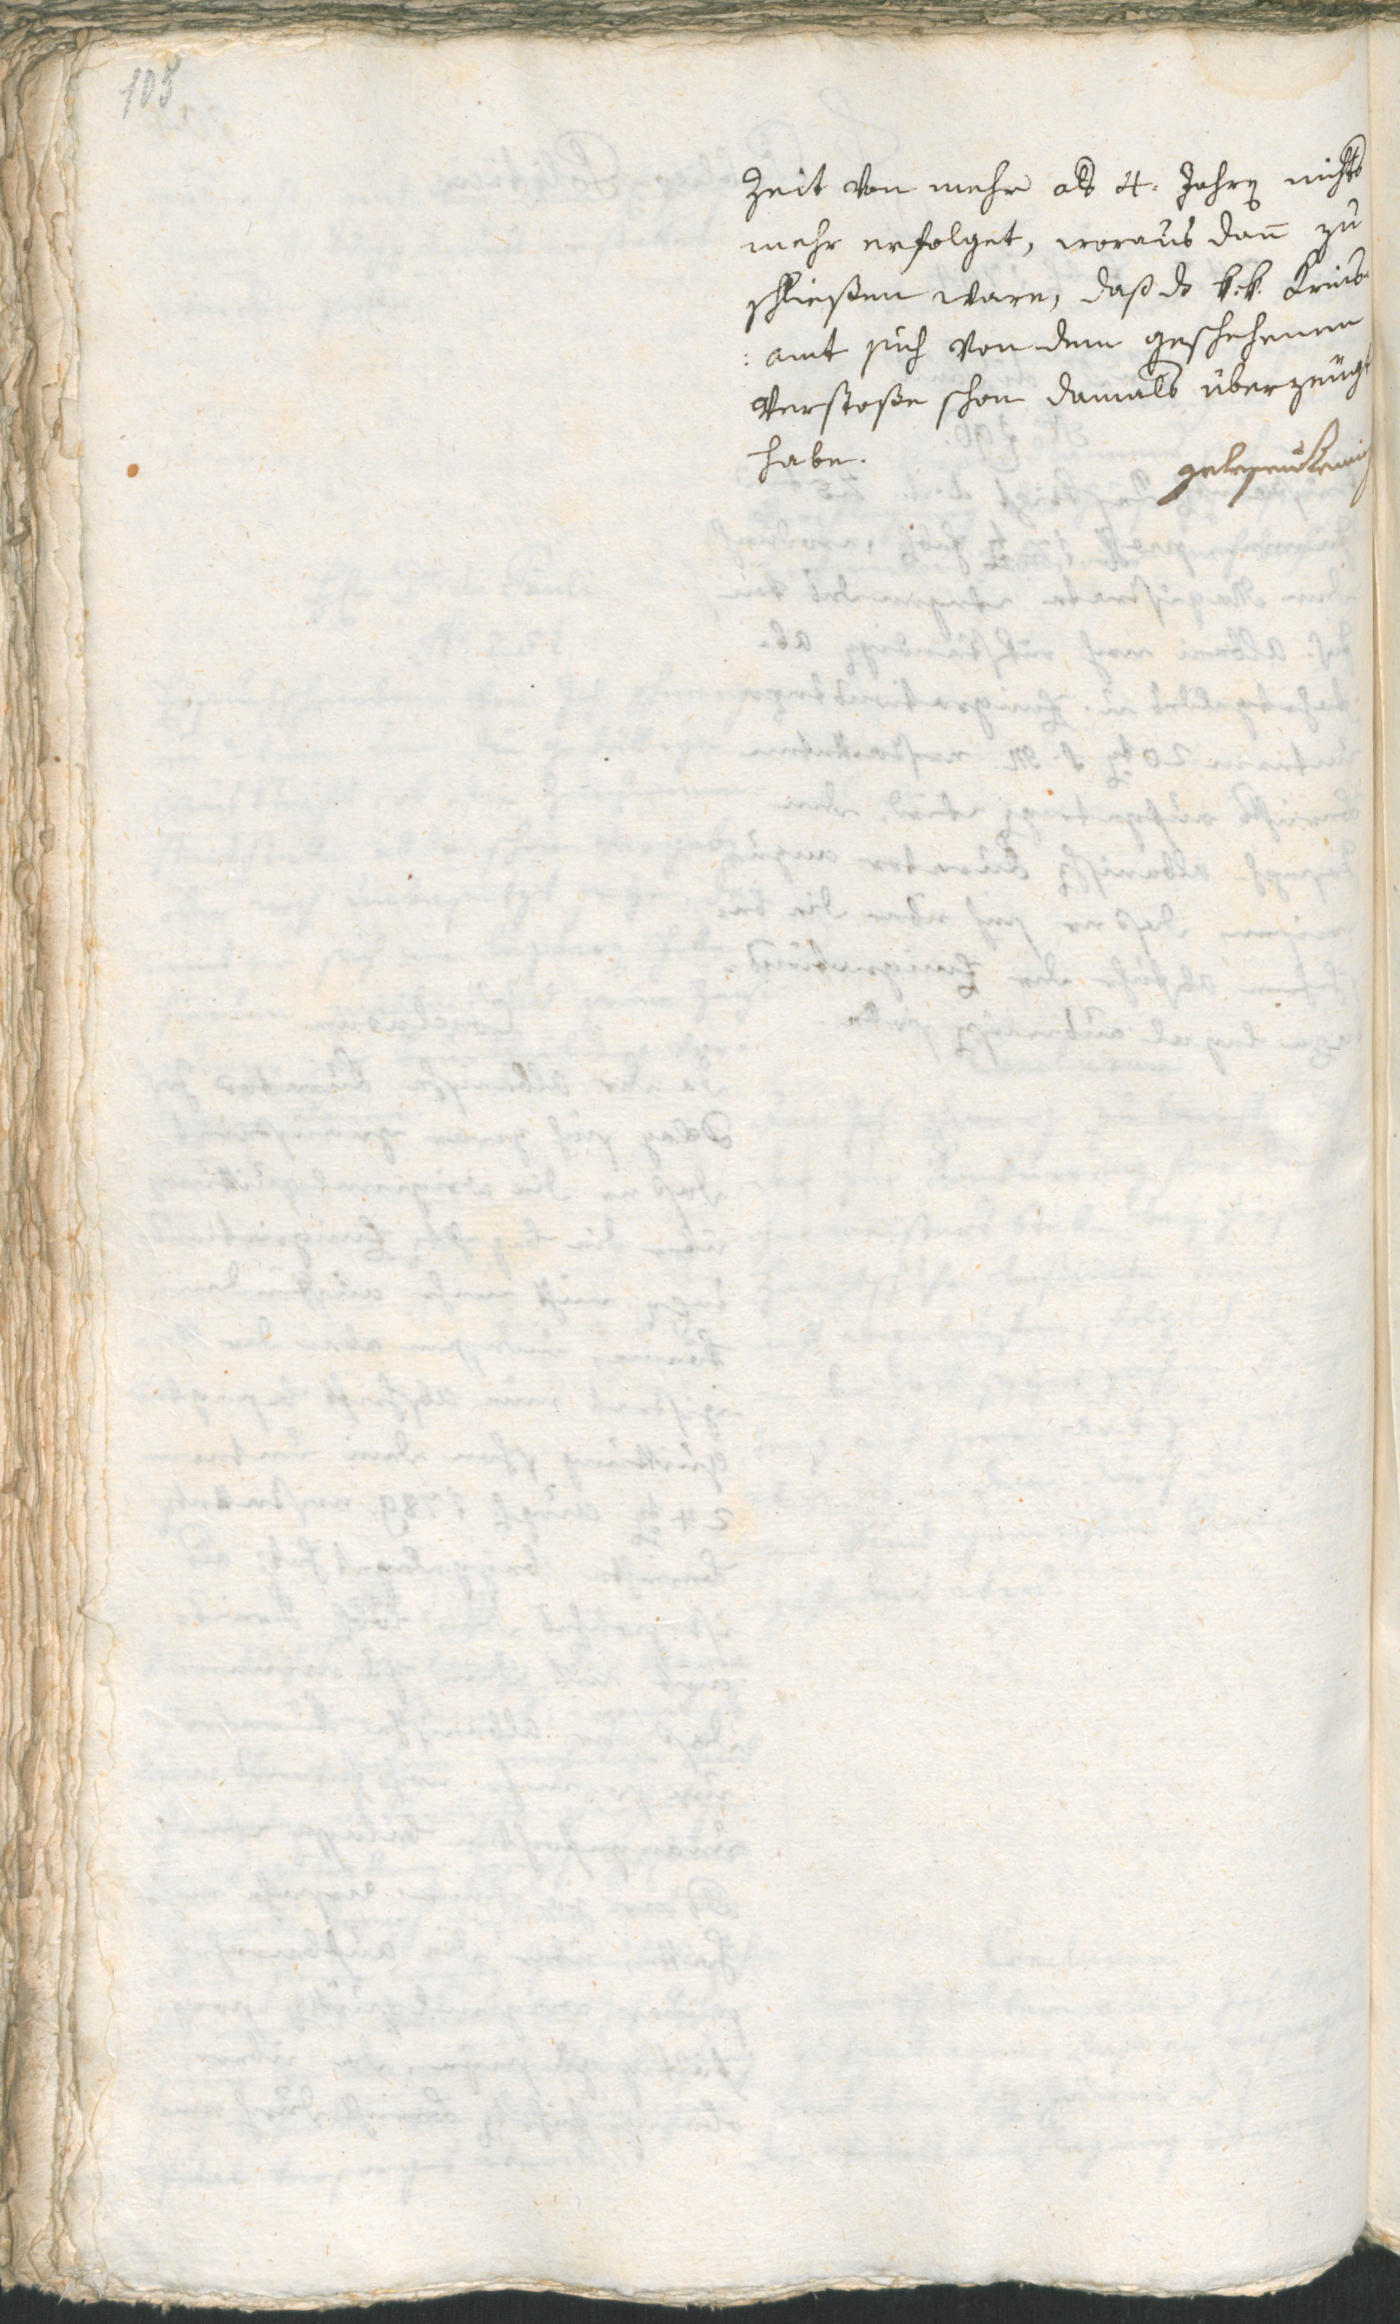 108
Zeit von mehr als 4. Jahren nichts
mehr erfolget, woraus dann zu
schließen ware, daß das k. k. Kreis-
: amt sich von dem geschehenen
Verstoße schon damals überzeugt
habe.
gelesen